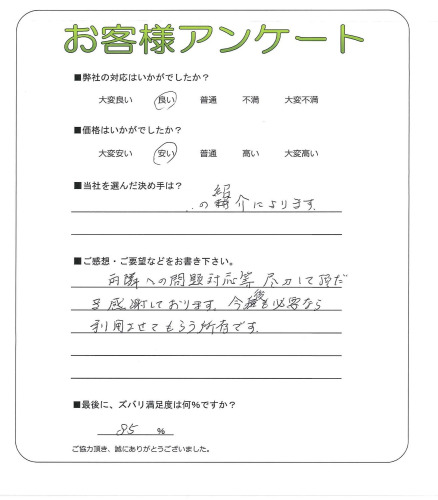 お客様アンケート
■弊社の対応はいかがでしたか？
大変良い 良い 普通 不満 大変不満
■価格はいかがでしたか？
大変安い 安い 普通 高い 大変高い
■当社を選んだ決め手は？
の紹介によります。
■ご感想・ご要望などをお書き下さい。
両隣への問題対応等 尽力して頂だ
き感謝しております。今後も必要なら
利用させてもらう所存です。
■最後に、ズバリ満足度は何％ですか？
85 %
ご協力頂き、誠にありがとうございました。